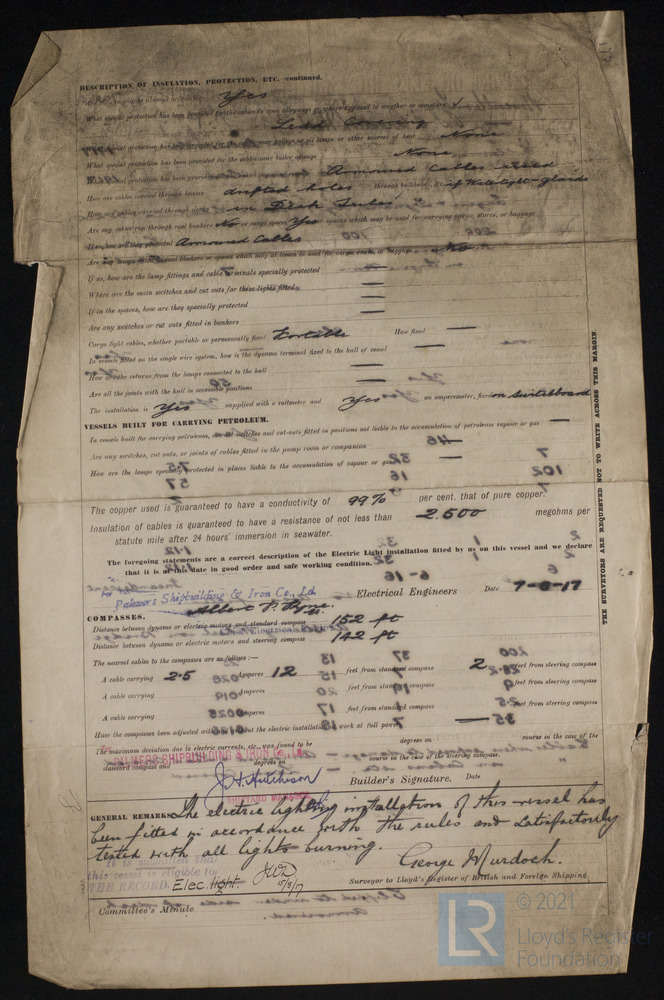 DESCRIPTION OF INSULATION, PROTECTION, ETC. continued.
Yes
What special protection has been provided for the cables in open alleyways or where exposed to weather or moisture
Lead Covering
What special protection has been provided for the cables near galleys or oil lamps or other sources of heat None
What special protection has been provided for the cables near boiler casings None
What special protection has been provided for the cables in engine room Armoured cables used
How are cables carried through beams drifted holes through bulkheads, &c. if Watertight - glands
How are cables carried through decks in Deck Tubes
Are any cables run through coal bunkers No or cargo spaces Yes or spaces which may be used for carrying cargo, stores, or baggage
If so, how are they protected Armoured Cables
Are any lamps fitted in coal bunkers or spaces which may at times be used for cargo, coals, or baggage No
If so, how are the lamp fittings and cable terminals specially protected —
Where are the main switches and cut outs for these lights fitted —
If in the spaces, how are they specially protected —
Are any switches or cut outs fitted in bunkers —
Cargo light cables, whether portable or permanently fixed Portable How fixed —
In vessels fitted on the single wire system, how is the dynamo terminal fixed to the hull of vessel —
How are the returns from the lamps connected to the hull —
Are all the joints with the hull in accessible positions —
The installation is Yes supplied with a voltmeter and Yes an amperemeter, fixed on Switchboard
VESSELS BUILT FOR CARRYING PETROLEUM.
In vessels built for carrying petroleum, are all switches and cut-outs fitted in positions not liable to the accumulation of petroleum vapour or gas —
Are any switches, cut outs, or joints of cables fitted in the pump room or companion —
How are the lamps specially protected in places liable to the accumulation of vapour or gas —
The copper used is guaranteed to have a conductivity of 99% per cent. that of pure copper.
Insulation of cables is guaranteed to have a resistance of not less than 2.500 megohms per
statute mile after 24 hours' immersion in seawater.
The foregoing statements are a correct description of the Electric Light installation fitted by us on this vessel and we declare
that it is at this date in good order and safe working condition.
For Palmers Shipbuilding & Iron Co., Ld
Electrical Engineers Date 7-8-17
COMPASSES.
Distance between dynamo or electric motors and standard compass 152 ft
Distance between dynamo or electric motors and steering compass 142 ft
The nearest cables to the compasses are as follows:—
A cable carrying 2.5 Amperes 12 feet from standard compass 2 feet from steering compass
A cable carrying Amperes feet from standard compass feet from steering compass
A cable carrying Amperes feet from standard compass feet from steering compass
Have the compasses been adjusted with and without the electric installation at work at full power —
The maximum deviation due to electric currents, etc., was found to be degrees on course in the case of the
standard compass and degrees on course in the case of the steering compass.
PALMERS SHIPBUILDING & IRON CO., LD.
J. H. Hutchison
SHIPYARD MANAGER
Builder's Signature. Date
GENERAL REMARKS The electric lighting installation of this vessel has
been fitted in accordance with the rules and satisfactorily
tested with all lights burning.
George Murdoch.
Surveyor to Lloyd's Register of British and Foreign Shipping.
It is submitted that
this vessel is eligible for
THE RECORD. Elec. light.
Committee's Minute
THE SURVEYORS ARE REQUESTED NOT TO WRITE ACROSS THIS MARGIN.
© 2021
LR
Lloyd's Register
Foundation